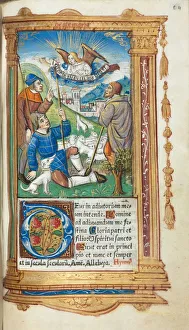 Deus in adiutorium me
um intende. Domine
ad adiuuandum me fe
stina Gloria patri et
filio et Spiritui sancto
Sicut erat in princi
pio et nunc et semper
et in secula seculorū. Amē. Alleluya. Hymnus